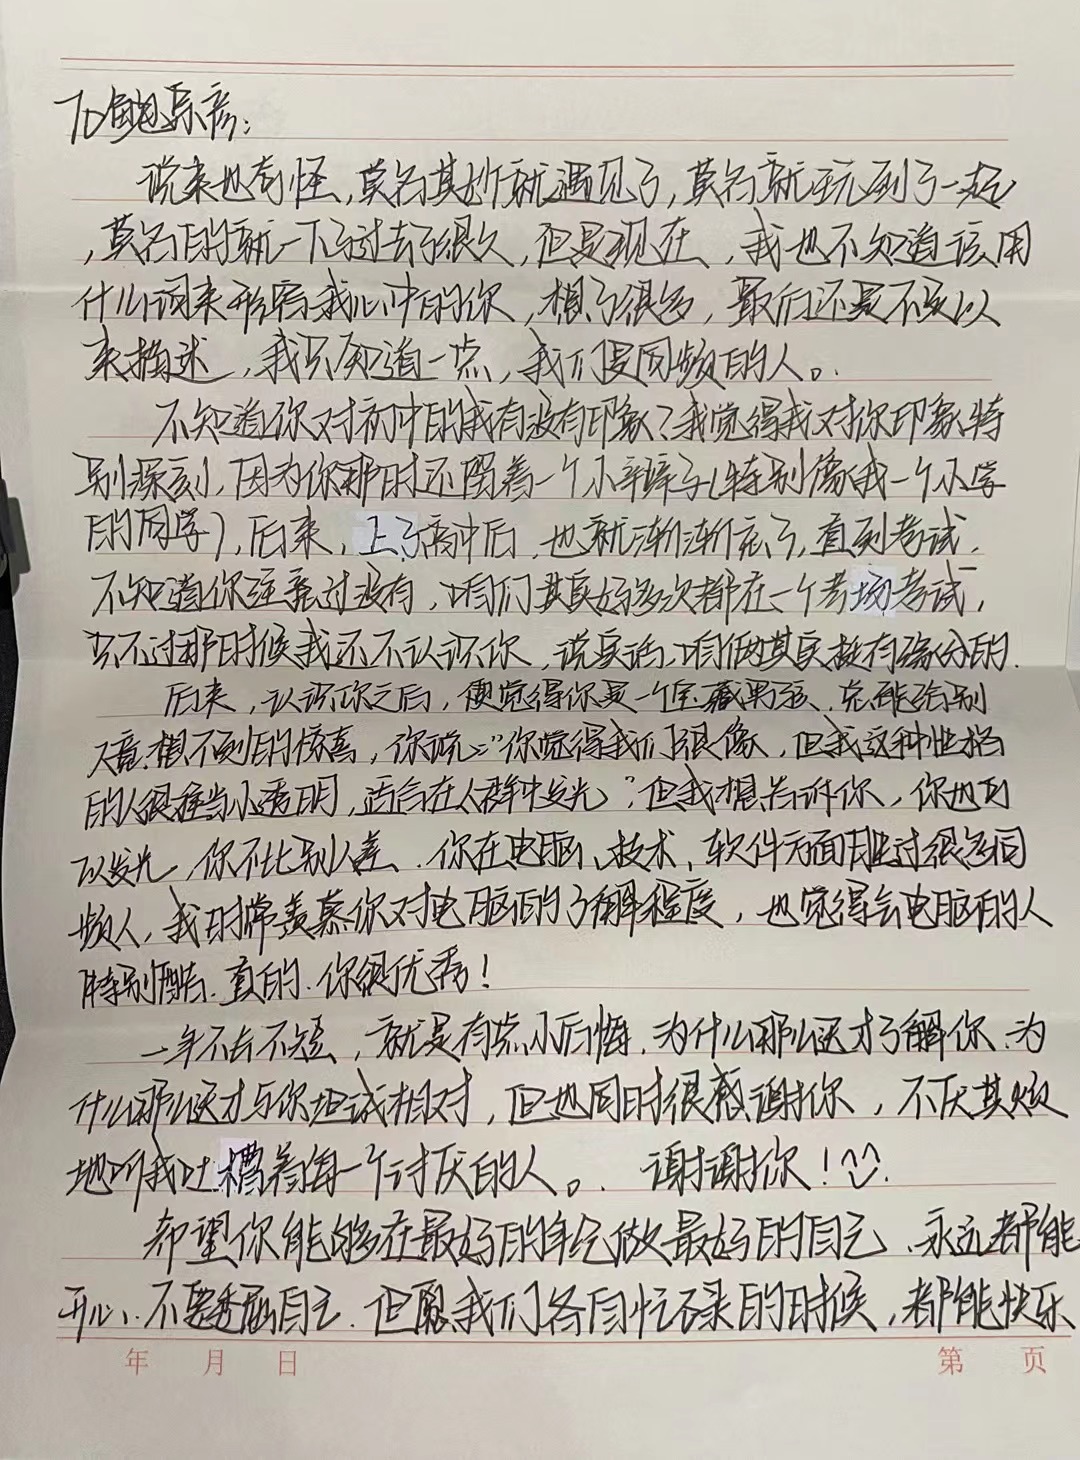 To 鲍泉彦：
说来也奇怪，莫名其妙就遇见了，莫名就玩到了一起
，莫名的就一下子过去了很久，但是现在，我也不知道该用
什么词来形容我心中的你，想了很多，最后还是不足以
来描述，我只知道一点，我们是同频的人。
不知道你对初中的我有没有印象？我觉得我对你印象特
别深刻，因为你那时还留着一个小辫子（特别像我一个小学
的同学），后来，上了高中后，也就渐渐忘了，直到考试，
不知道你注意过没有，咱们其实好多次都在一个考场考试，
只不过那时候我还不认识你，说实话，咱俩其实挺有缘分的.
后来，认识你之后，便觉得你是一个宝藏男孩，总能给别
人意想不到的惊喜，你说："你觉得我们很像，但我这种性格
的人很难当小透明，适合在人群中发光"，但我想告诉你，你也可
以发光，你不比别人差、你在电脑、技术、软件方面胜过很多同
频人，我时常羡慕你对电脑的了解程度，也觉得会电脑的人
特别酷. 真的. 你很优秀！
一年不长不短，就是有点小后悔，为什么那么迟才了解你. 为
什么那么迟才与你坦诚相对，但也同时很感谢你，不厌其烦
地听我吐槽着每一个讨厌的人。. 谢谢你！^^.
希望你能够在最好的年纪做最好的自己、永远都能
开心、不要委屈自己. 但愿我们各自忙碌的时候，都能快乐
年 月 日 第 页